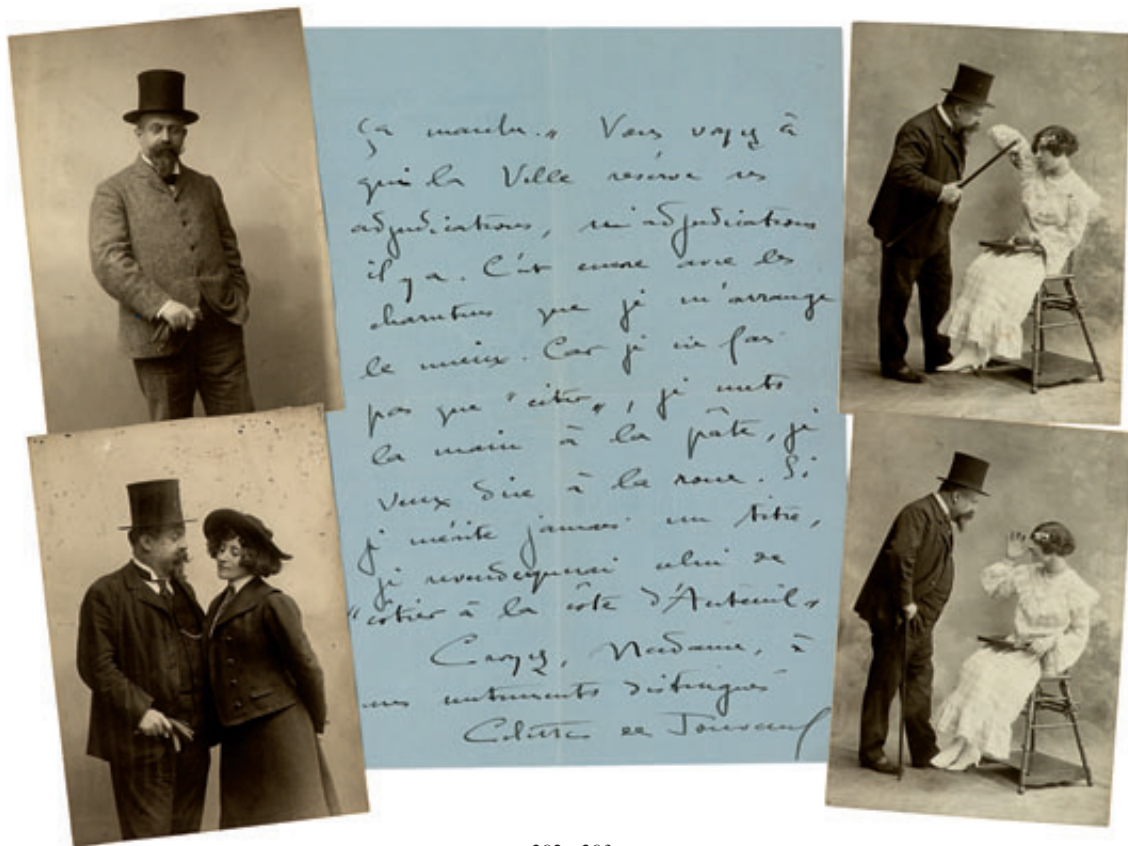 ça marche.„ Vous voyez à
qui la Ville réserve ses
adjudications, si adjudications
il y a. C'est encore avec les
charretiers que je m'arrange
le mieux. Car je ne fais
pas que je mets
la main à la pâte, je
veux dire à la roue. Si
je mérite jamais un titre,
je revendiquerai celui de
"côtier à la côte d'Auteuil„
Croyez, Madame, à
mes sentiments distingués
Colette de Jouvenel